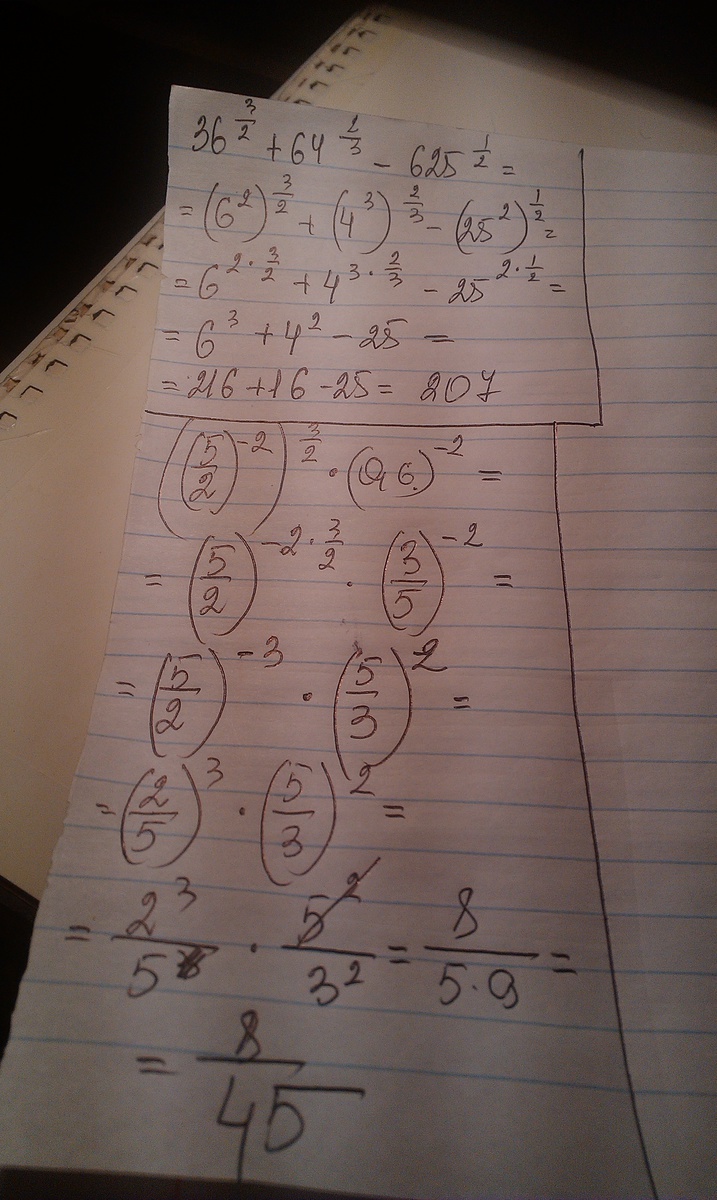 36^(3/2) + 64^(2/3) - 625^(1/2) =
= (6^2)^(3/2) + (4^3)^(2/3) - (25^2)^(1/2) =
= 6^(2·3/2) + 4^(3·2/3) - 25^(2·1/2) =
= 6^3 + 4^2 - 25 =
= 216 + 16 - 25 = 207
((5/2)^-2)^(3/2) · (0,6)^-2 =
= (5/2)^(-2·3/2) · (3/5)^-2 =
= (5/2)^-3 · (5/3)^2 =
= (2/5)^3 · (5/3)^2 =
= 2^3/5^3 · 5^2/3^2 = 8/(5·9) =
= 8/45